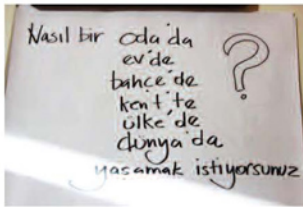 Nasıl bir oda'da
ev'de
bahçe'de
kent'te
ülke'de
dünya'da
yaşamak istiyorsunuz
?